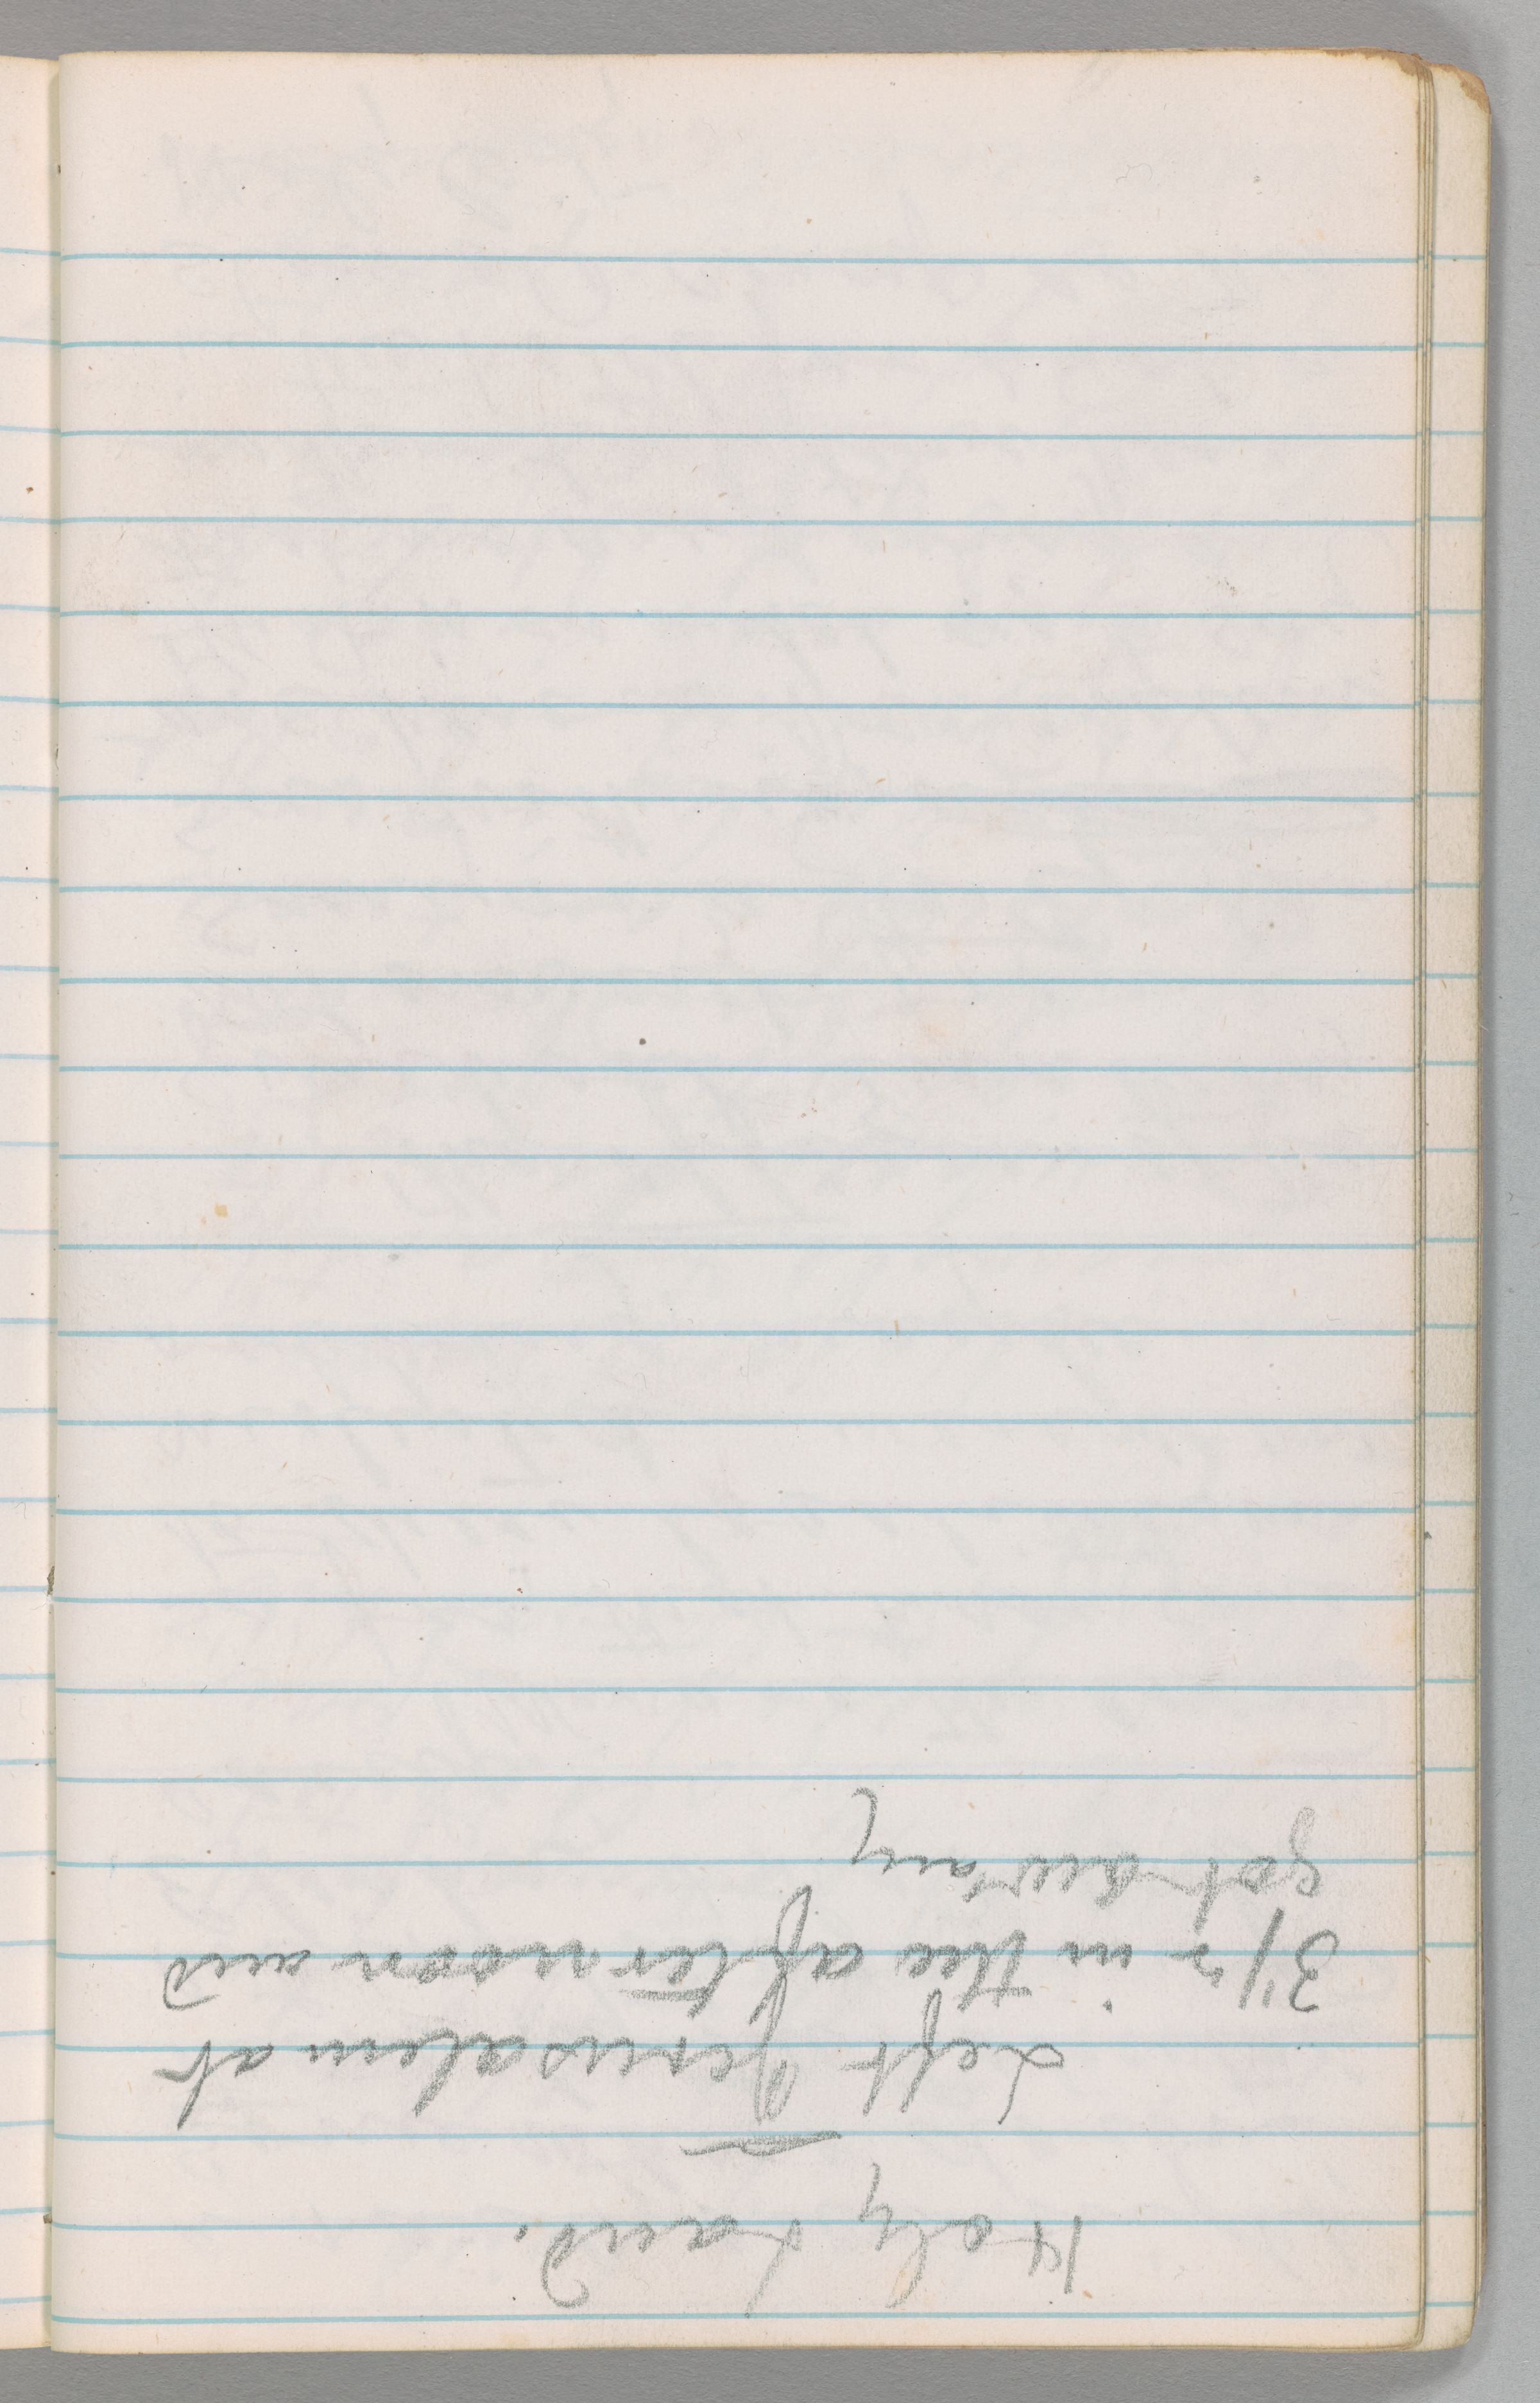 Holy Land.
Left Jerusalem at
3 1/2 in the afternoon and
got away